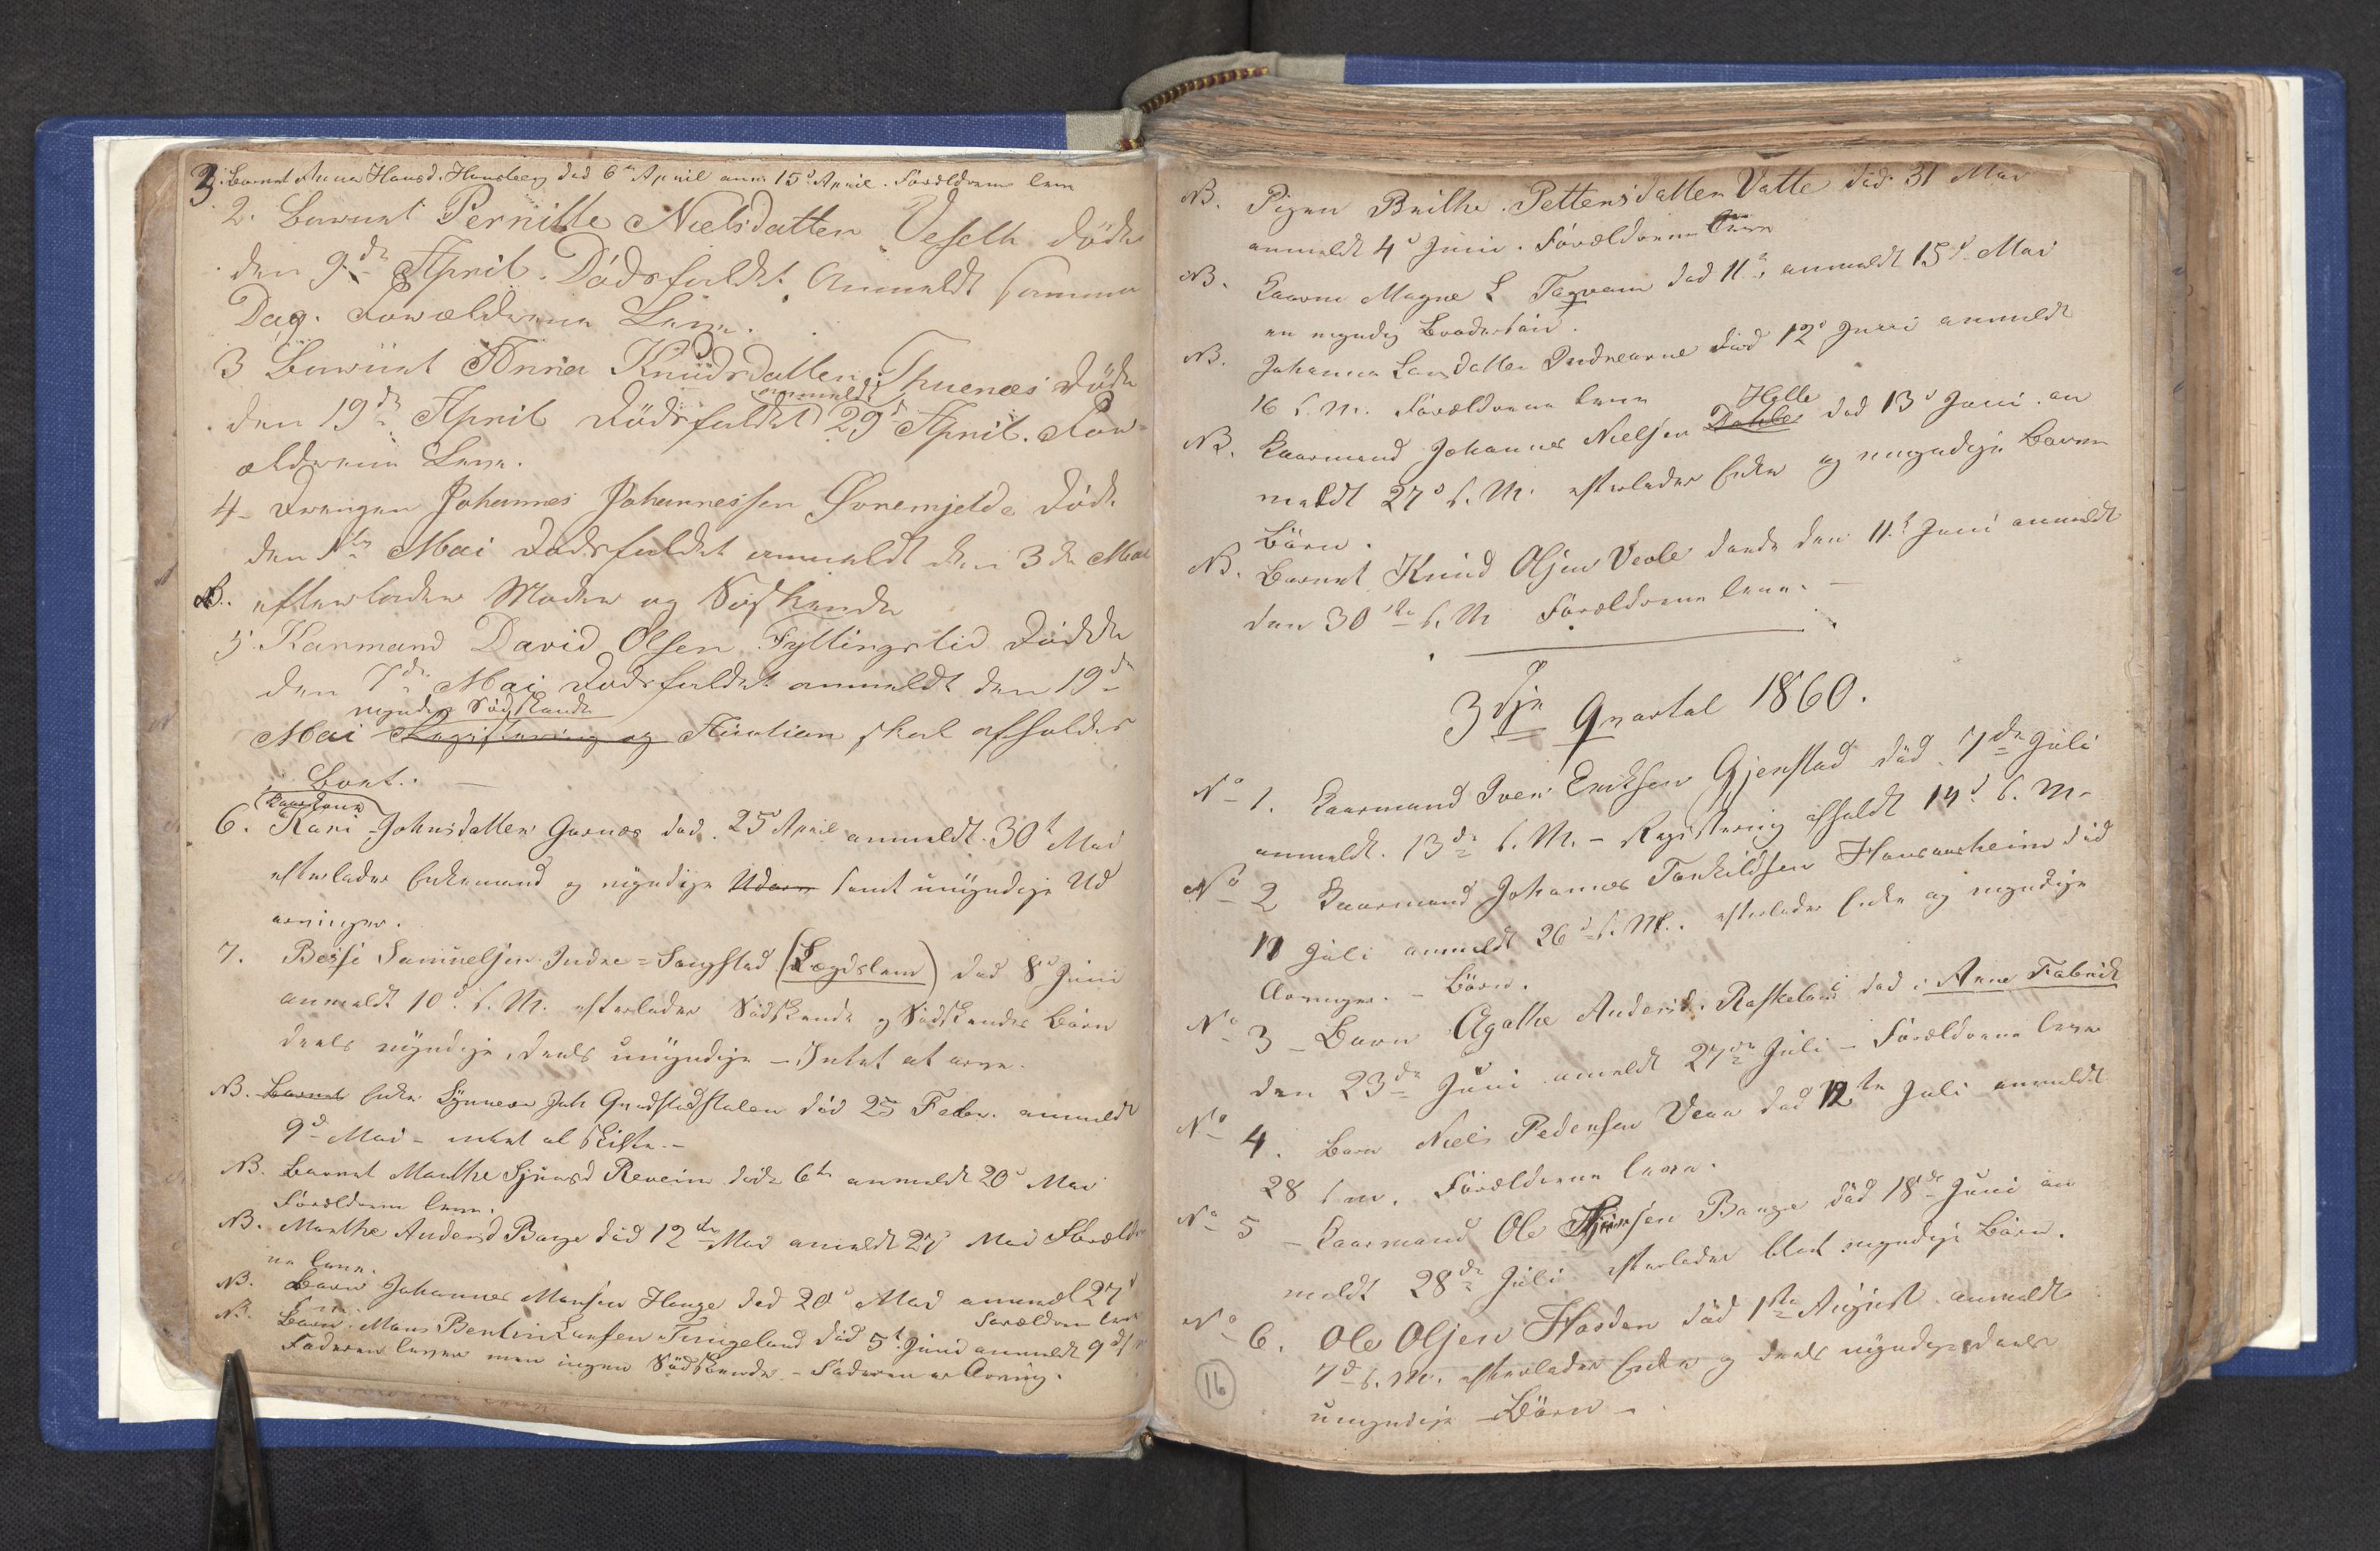 Barnet Anna Hansd. Hamsberg død 6te April anm 15d April. Forældrene leve
2. Barnet Pernille Nielsdatter Veseth døde
den 9de April. Dødsfaldet Anmeldt samme
Dag. Forældrene Leve.
3 Barnet Anna Knüdsdatter Thuenæs døde
den 19de April Dødsfaldet anmeldt 29d April. For-
ældrene Leve.
4- Drengen Johannes Johannessen Øvremjelde døde
den 1ste Mai Dødsfaldet anmeldt den 3de Mai
NB. efterlader Moder og Søskende
5 Karmand David Olsen Fyllingslid Dødde
den 7de Mai Dødsfaldet anmeldt den 19de
myndige Sødskende
Mai Registrering og Auction skal afholdes
Bort. –
Kaarkone
6. Kari Johnsdatter Garnæs død 25d April anmeldt 30t Mai
efterlader Enkemand og myndige Udarv samt umyndige Ud
arvinger.
7. Besse Samuelsen Indre=Sangstad (Lægdslem) død 8d Juni
anmeldt 10d s. M. efterlader Sødskende og Sødskendes Børn
deels myndige, deels umyndige – Intet at arve.
NB. Barnet Enke Synneve Joh Gudstadstølen død 25 Febr. anmeldt
9d Mai – intet at skifte. –
NB. Barnet Marthe Sjursd Revein døde 6te anmeldt 20d Mai
Forældrene leve.
NB. Marthe Andersd Bauge død 12te Mai anmeldt 27d Mai Forældre
ne leve.
NB. Barn Johannes Monsen Hauge død 20d Mai anmeldt 27d
s m. Forældrene leve
NB. Barn. Mons Bentin Larsen Tingeland død 5t Juni anmeldt 9d s
Faderen lever men ingen Sødskende. – Faderen er Arving.
NB. Pigen Brithe Pettersdatter Vatle død 31 Mai
anmeldt 4d Juni. Forældrene leve
NB. Kaarm Magne L Tagvam død 11te anmeldt 15d Mai
en myndig Brodersøn.
NB. Johanna Larsdatter Indrearne død 12d Juni anmeldt
16 s. M. Forældrene leve
Helle
NB. Kaarmand Johannes Nielsen død 13d Juni an
meldt 27d s. M. efterlader Enke og myndige Barne
Børn.
NB. Barnet Knud Olsen Veole døde den 11te Juni anmeldt
den 30te s. M Forældrene leve. –
3dje Qvartal 1860.
No 1. Kaarmand Iver Eriksen Gjerstad død 7de Juli
anmeldt. 13de s. M. – Registrering afholdt 14d s. M.
No 2 Kaarmand Johannes Torkildsen Hansaasheim død
11 Juli anmeldt 26d s. M. efterlader Enke og myndige
Arvinger. – Børn.
No 3 – Barn Agathe Andersd. Raskeland død i Arne Fabrik
den 23de Juni anmeldt 27de Juli – Forældrene leve
No 4. Barn Niels Pedersen Veaa død 12te Juli anmeldt
28 s m. Forældrene leve.
No 5 – Kaarmand Ole Sjursen Bauge død 18de Juni an
meldt 28de Juli efterlader blot myndige Børn.
No 6. Ole Olsen Horden død 1ste August anmeldt
7d s. M. efterlader Enke og deels myndige deels
umyndige – Børn –
16